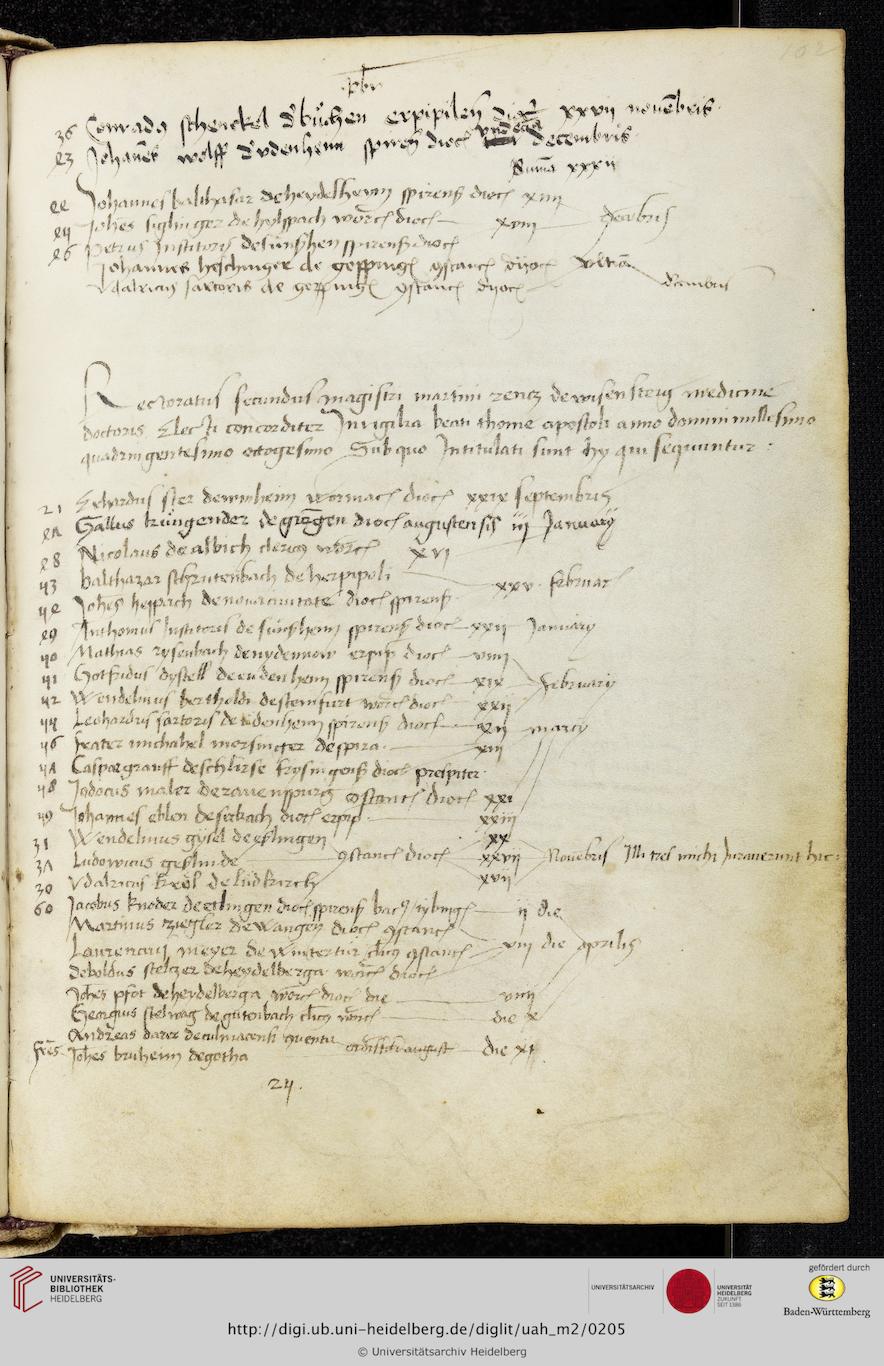 102
pbr
36 Conradus schenckel de buchen erpipilen dioc xxvii novembris
Johanes wolff de udenhem spiren dioc undecima decembris
Summa xxxii
Johannes balthasar de heydelhem spirens dioc xiiii
Johes siglinger de hylspach worc dioc xviii decembris
Petrus Institoris de sunshen spirens dioc
Johannes heschinger de geppingen constanc dijoc ultima
Udalricus sartoris de geppingen constanc dijoc decembris
Rectoratus secundus magistri martini rencz de wisensteig medicine
doctoris Electi concorditer In vigilia beati thome apostoli anno domini millesimo
quadringentesimo octogesimo Sub quo Intitulati sunt hy qui sequuntur :
21 Erhardus de wormac dioc xxix septembris
Gallus de dioc augustensis iij January
Nicolaus de albich clericus worc xvi
43 balthazar de herpipoli
Johes de nova civitate dioc spirens xxv februar
Anthonius Institoris de sunshem spirens dioc xxii January
40 Mathias rysenbach de erpip dioc viiii
41 Gotfridus dystell de udenhem spirens dioc xix february
42 Wendelinus bertholdi de stemfurt worc dioc xxii
44 Leohardus sartoris de udenhem spirens dioc xii marcy
46 frater michahel morsinger de spira xiii
Caspar grauff de schlirse frysingens dioc prespiter
48 Jodocus maler de ravenspurg constanc dioc xxi
49 Johannes eblen de dioc erpip xxiii
31 Wendelinus gysel de eslingen xx
Ludowicus de constanc dioc xxvii Novembris Illi tres michi Juraverunt hic
30 Udalricus de ludkirch xvii
60 Jacobus knoder de etlingen dioc spirens bac tybing ii die
Martinus ziegler de wangen dioc constanc
Laurencius meyer de wintertur clicus constanc viii die aprilis
deboldus stelczer de heydelberga worc dioc
Johes pfot de heydelberga worc dioc die viiii
Georgius stelwag de gutenbach clicus worc die x
Andreas de culmacensi
fres Johes bruhem de gotha ordis sti august die xi
24.
UNIVERSITÄTS-
BIBLIOTHEK
HEIDELBERG
UNIVERSITÄTSARCHIV
UNIVERSITÄT
HEIDELBERG
ZUKUNFT
SEIT 1386
gefördert durch
Baden-Württemberg
http://digi.ub.uni-heidelberg.de/diglit/uah_m2/0205
© Universitätsarchiv Heidelberg